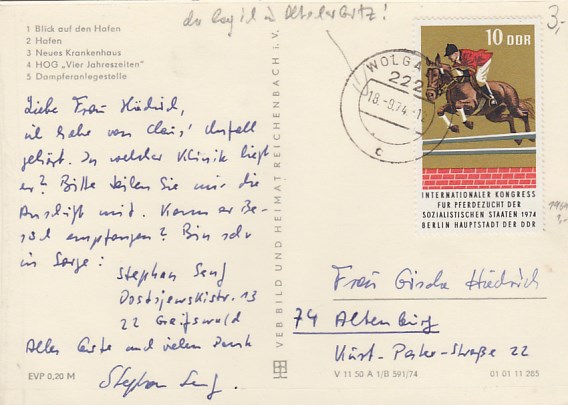 3,-
1 Blick auf den Hafen
2 Hafen
3 Neues Krankenhaus
4 HOG „Vier Jahreszeiten"
5 Dampferanlegestelle
Liebe Frau Hädrich,
ich habe von Claus' Unfall
gehört. In welcher Klinik liegt
er? Bitte teilen Sie mir die
Anschrift mit. Kann er Be-
such empfangen? Bin sehr
in Sorge:
Stephan Senf
Dostojewskistr. 13
22 Greifswald
Alles Gute und vielen Dank
Stephan Senf.
EVP 0,20 M
VEB BILD UND HEIMAT REICHENBACH i. V.
WOLGAST
222
18.-9.74.-1
c
10 DDR
INTERNATIONALER KONGRESS
FÜR PFERDEZUCHT DER
SOZIALISTISCHEN STAATEN 1974
BERLIN HAUPTSTADT DER DDR
Frau Gisela Hädrich
74 Altenburg
Kürst-Poster-Straße 22
V 11 50 A 1/B 591/74
01 01 11 285